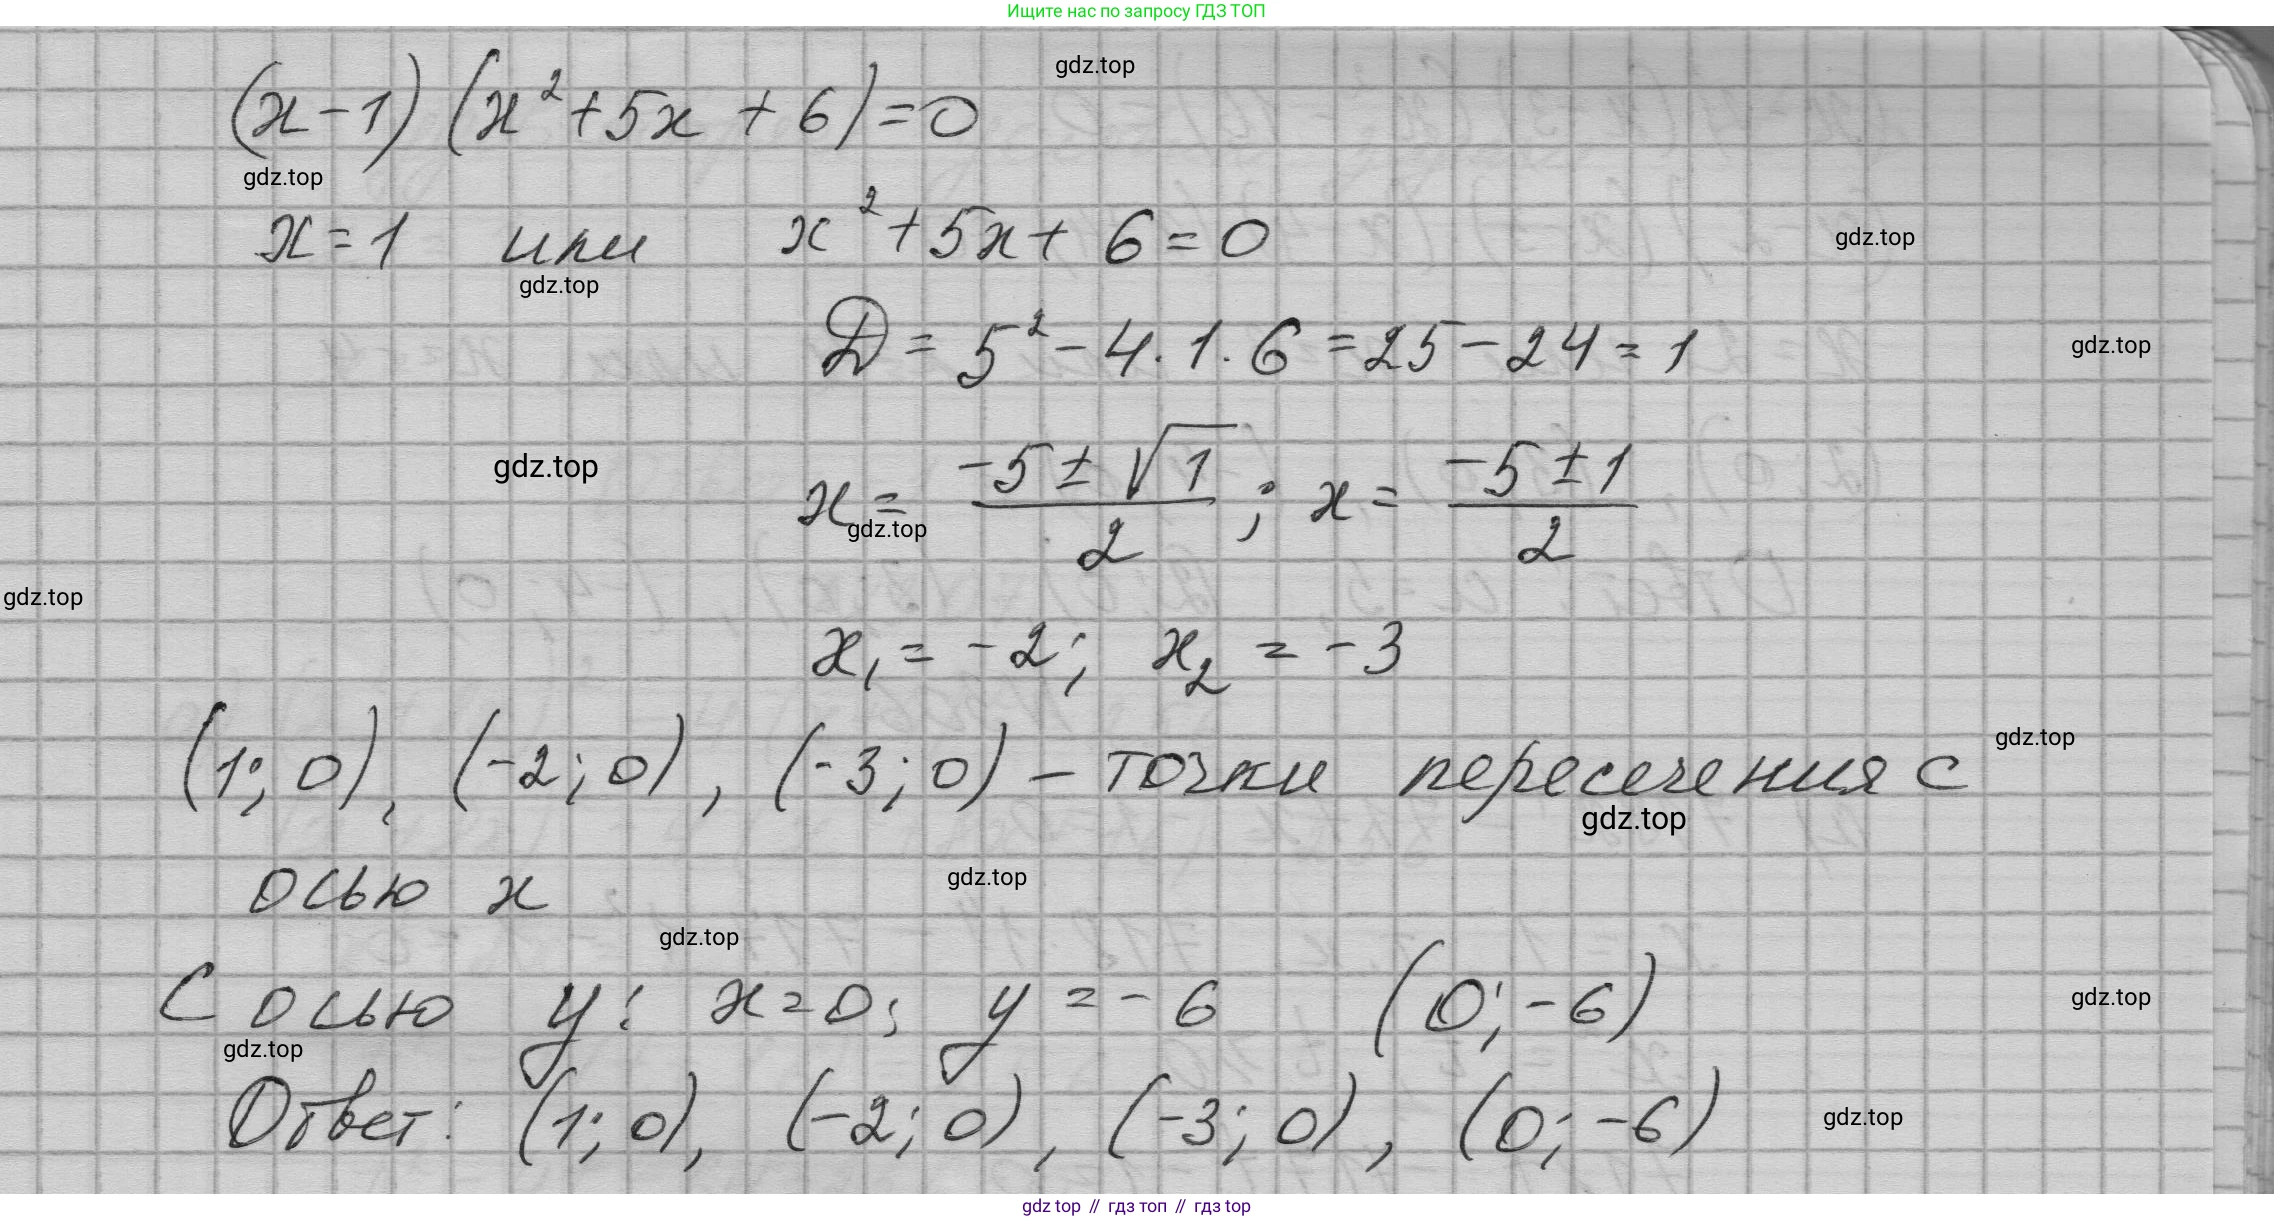 Ищите нас по запросу ГДЗ ТОП
gdz.top
(x-1) (x²+5x + 6)=0
gdz.top
x=1 или x²+5x+ 6=0
gdz.top
gdz.top
D = 5²-4·1·6=25-24=1
gdz.top
gdz.top
x = (-5±√1)/2 ; x = (-5±1)/2
gdz.top
gdz.top
x₁ = -2; x₂ = -3
gdz.top
(1; 0), (-2; 0), (-3; 0) - точки пересечения с
gdz.top
осью x
gdz.top
gdz.top
С осью y: x=0; y = -6 (0; -6)
gdz.top
gdz.top
Ответ: (1; 0), (-2; 0), (-3; 0), (0; -6)
gdz.top
gdz top // гдз топ // гдз top